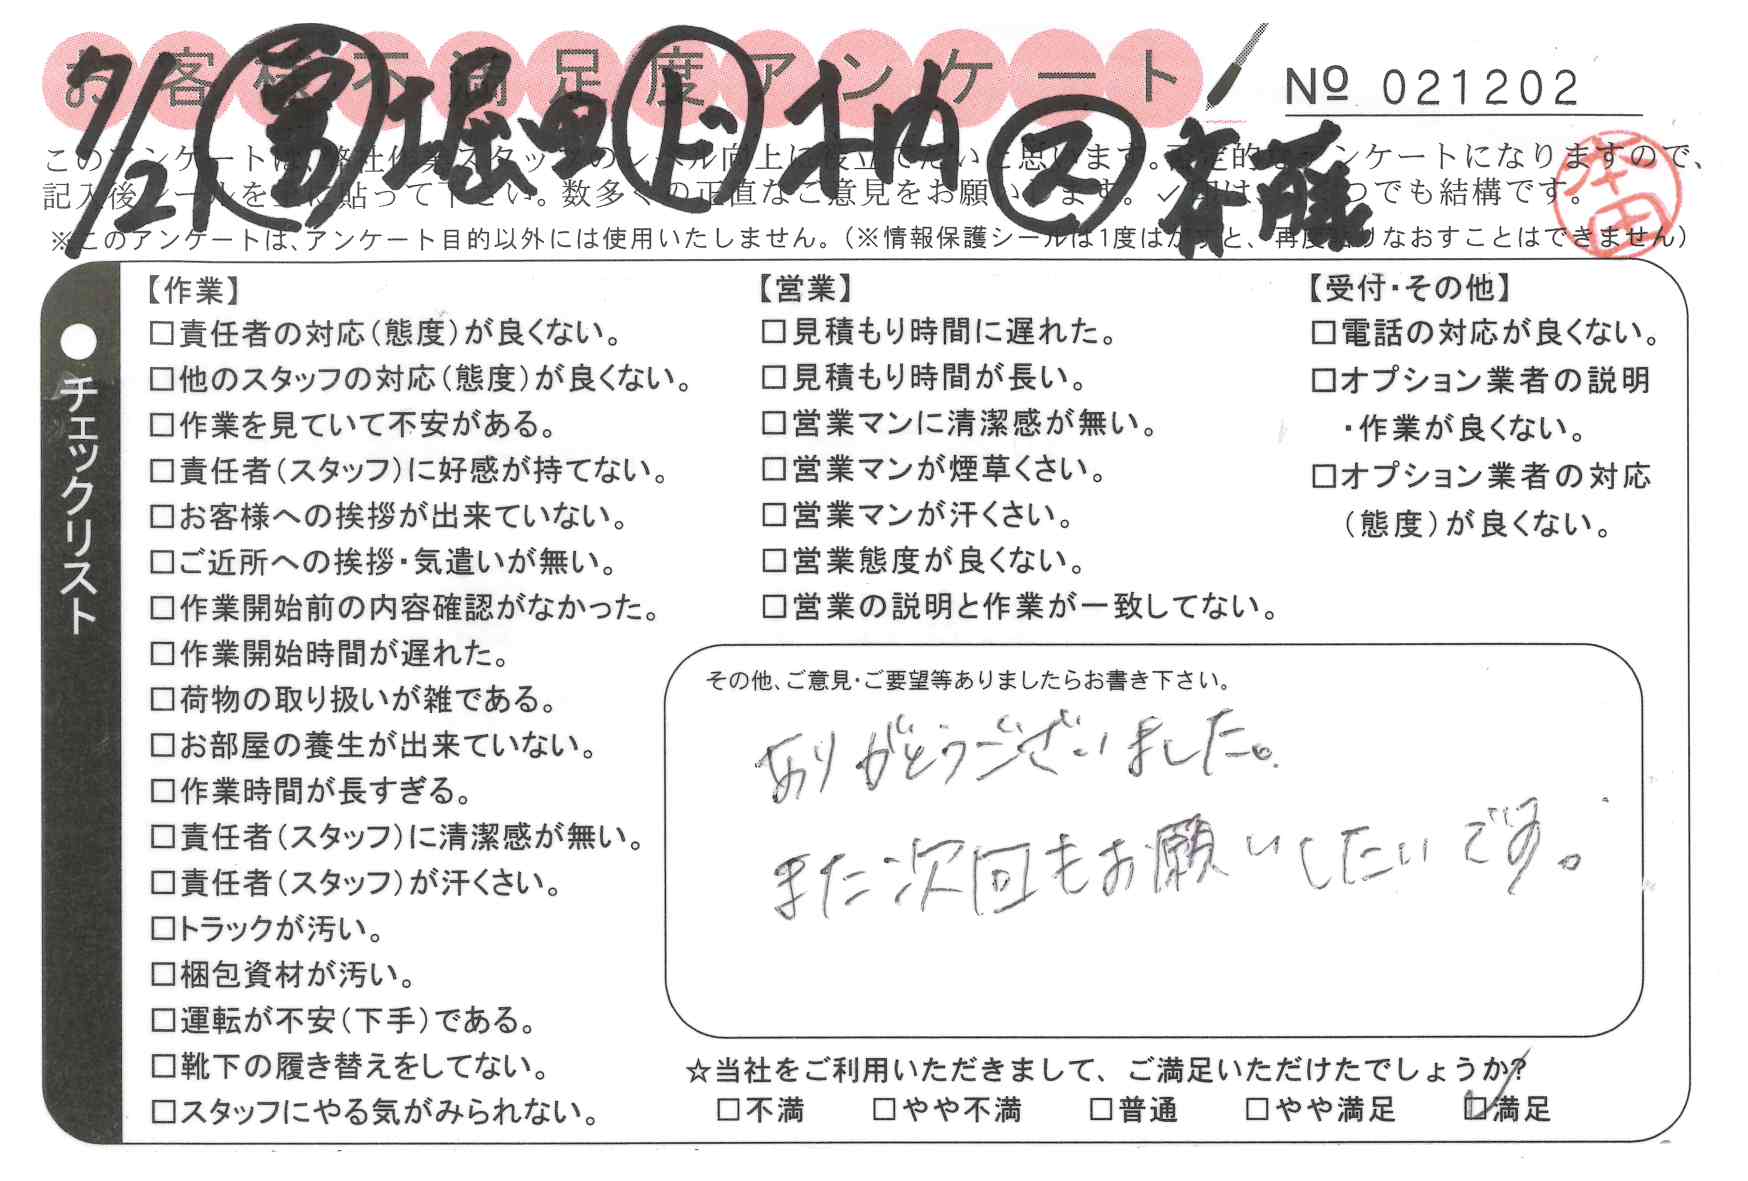 お客様不満足度アンケート
№ 021202
7/12 営 堀田 ド 竹内 ス 斉藤
本田
このアンケートは、弊社作業スタッフのレベル向上に役立てたいと思います。不定的なアンケートになりますので、
記入後シールを上に貼って下さい。数多くの正直なご意見をお願いします。✓印は、いくつでも結構です。
※このアンケートは、アンケート目的以外には使用いたしません。（※情報保護シールは1度はがすと、再度貼りなおすことはできません）
●チェックリスト
【作業】
□責任者の対応（態度）が良くない。
□他のスタッフの対応（態度）が良くない。
□作業を見ていて不安がある。
□責任者（スタッフ）に好感が持てない。
□お客様への挨拶が出来ていない。
□ご近所への挨拶・気遣いが無い。
□作業開始前の内容確認がなかった。
□作業開始時間が遅れた。
□荷物の取り扱いが雑である。
□お部屋の養生が出来ていない。
□作業時間が長すぎる。
□責任者（スタッフ）に清潔感が無い。
□責任者（スタッフ）が汗くさい。
□トラックが汚い。
□梱包資材が汚い。
□運転が不安（下手）である。
□靴下の履き替えをしてない。
□スタッフにやる気がみられない。
【営業】
□見積もり時間に遅れた。
□見積もり時間が長い。
□営業マンに清潔感が無い。
□営業マンが煙草くさい。
□営業マンが汗くさい。
□営業態度が良くない。
□営業の説明と作業が一致してない。
【受付・その他】
□電話の対応が良くない。
□オプション業者の説明
・作業が良くない。
□オプション業者の対応
（態度）が良くない。
その他、ご意見・ご要望等ありましたらお書き下さい。
ありがとうございました。
また次回もお願いしたいです。
☆当社をご利用いただきまして、ご満足いただけたでしょうか?
□不満 □やや不満 □普通 □やや満足 ☑満足